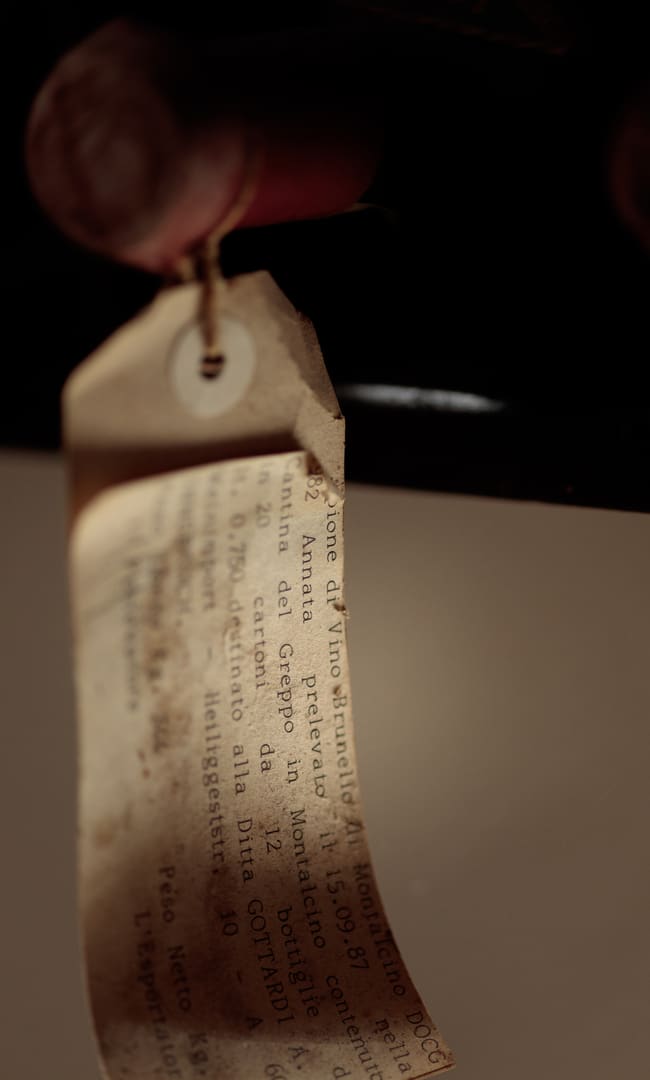 pione di Vino Brunello di Montalcino DOCG
982 Annata prelevato il 15.09.87 nella
Cantina del Greppo in Montalcino contenut
in 20 cartoni da 12 bottiglie d
t. 0.750 destinato alla Ditta GOTTARDI A.
- Heiliggeststr. 10 - A 60
Peso Netto Kg.
L'Esportator